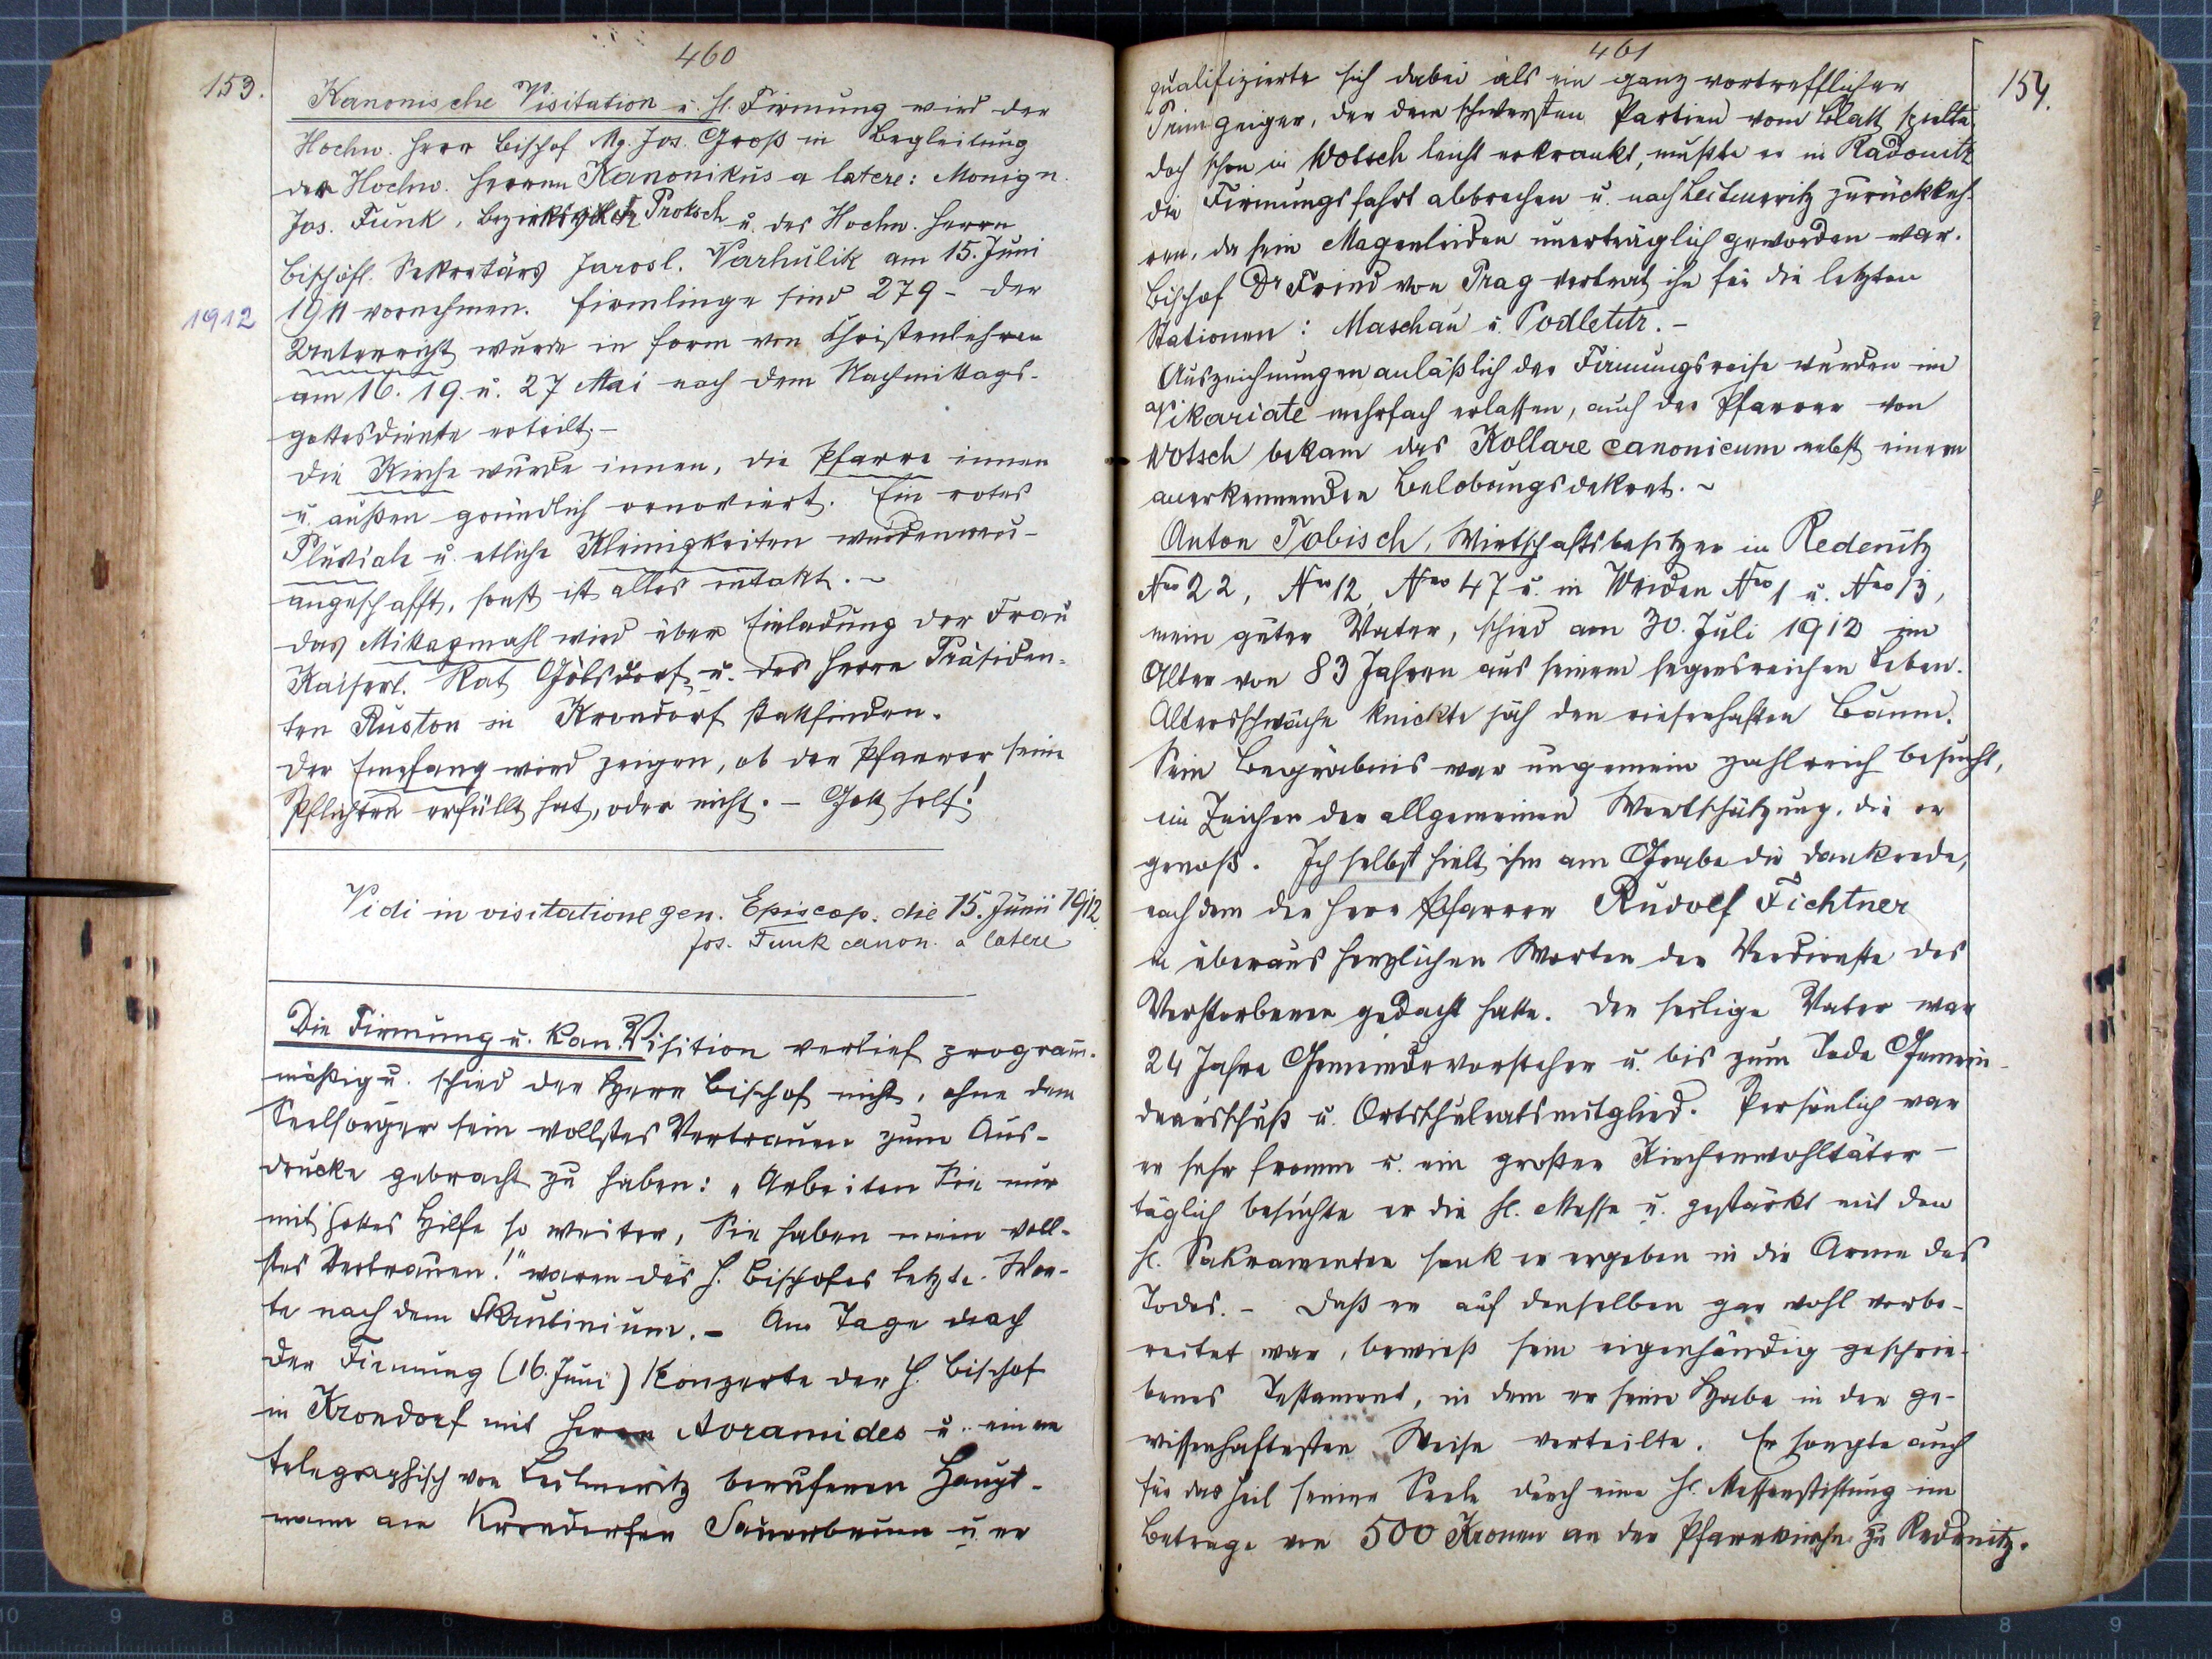 460
153.
Kanonische Visitation u. hl. Firmung wird der
Hochw. Herr Bischof Mg. Jos. Groß in Begleitung
des Hochw. Herrn Kanonikus a latere: Monsign.
Jos. Funk, Bezirksvikär Protsch u. des Hochw. Herrn
bischöfl. Sekretärs Jarosl. Varhulik am 15. Juni
1912
1911 vornehmen. Firmlinge sind 279 – Der
Unterricht wurde in Form von Christenlehren
am 16. 19. u. 27 Mai nach dem Nachmittags-
gottesdienste erteilt. –
Die Kirche wurde innen, die Pfarre innen
u. außen gründlich renoviert. Ein rotes
Pluviale u. etliche Kleinigkeiten wurden neu-
angeschafft, sonst ist alles intakt. –
Das Mittagmahl wird über Einladung der Frau
Kaiserl. Rat Gölsdorf u. des Herrn Präsiden-
ten Ruston in Krondorf stattfinden.
Der Empfang wird zeigen, ob der Pfarrer seine
Pflichten erfüllt hat, oder nicht. – Gott helf!
Vidi in visitatione gen. Episcop. die 15. Junii 1912.
Jos. Funk canon. a latere
Die Firmung u. kan. Visition verlief programm-
mäßig u. schied der Herr Bischof nicht, ohne dem
Seelsorger sein vollstes Vertrauen zum Aus-
drucke gebracht zu haben: „Arbeiten Sie nur
mit Gottes Hilfe so weiter, Sie haben mein voll-
stes Vertrauen!" waren des H. Bischofes letzte Wor-
te nach dem Skrutinium. – Am Tage nach
der Firmung (16. Juni) konzerte der H. Bischof
in Krondorf mit Herrn Avramides u. einem
telegraphisch von Leitmeritz berufenen Haupt-
mann am Krondorfer Sauerbrunn u. er
461
154.
qualifizierte sich dabei als ein ganz vortrefflicher
Primgeiger, der den schwersten Partien vom Blatt spielte.
doch schon in Wotsch leicht erkrankt, mußte er in Radonitz
die Firmungsfahrt abbrechen u. nach Leitmeritz zurückkeh-
ren, da sein Magenleiden unerträglich geworden war.
Bischof Dr Frind von Prag vertrat ihn für die letzten
Stationen: Maschau u. Podletitz. –
Auszeichnungen anläßlich der Firmungsreise wurden im
Vikariate mehrfach erlassen, auch der Pfarrer von
Wotsch bekam das Kollare canonicum nebst einem
anerkennenden Belobungsdekret. ~
Anton Tobisch, Wirtschaftsbesitzer in Redenitz
Nro 22, Nro 12, Nro 47 u. in Weiden Nro 1 u. Nro 13,
mein guter Vater, schied am 30. Juli 1912 im
Alter von 83 Jahren aus seinem segensreichen Leben.
Altersschwäche knickte jäh den riesenhaften Baum.
Sein Begräbnis war ungemein zahlreich besucht,
ein Zeichen der allgemeinen Wertschätzung, die er
genoß. Ich selbst hielt ihm am Grabe die Dankrede,
nachdem der Herr Pfarrer Rudolf Fichtner
in überaus herzlichen Worten der Verdienste des
Verstorbenen gedacht hatte. Der selige Vater war
24 Jahre Gemeindevorsteher u. bis zum Tode Gemein-
deausschuß u. Ortsschulratsmitglied. Persönlich war
er sehr fromm u. ein großer Kirchenwohltäter –
täglich besuchte er die hl. Messe u. gestärkt mit den
hl. Sakramenten sank er ergeben in die Arme des
Todes. – Daß er auf denselben gar wohl vorbe-
reitet war, bewieß sein eigenhändig geschrie-
benes Testament, in dem er seine Habe in der ge-
wissenhaftesten Weise verteilte. Er sorgte auch
für das Heil seiner Seele durch eine hl. Messenstiftung im
Betrage von 500 Kronen an der Pfarrkirche zu Redenitz.